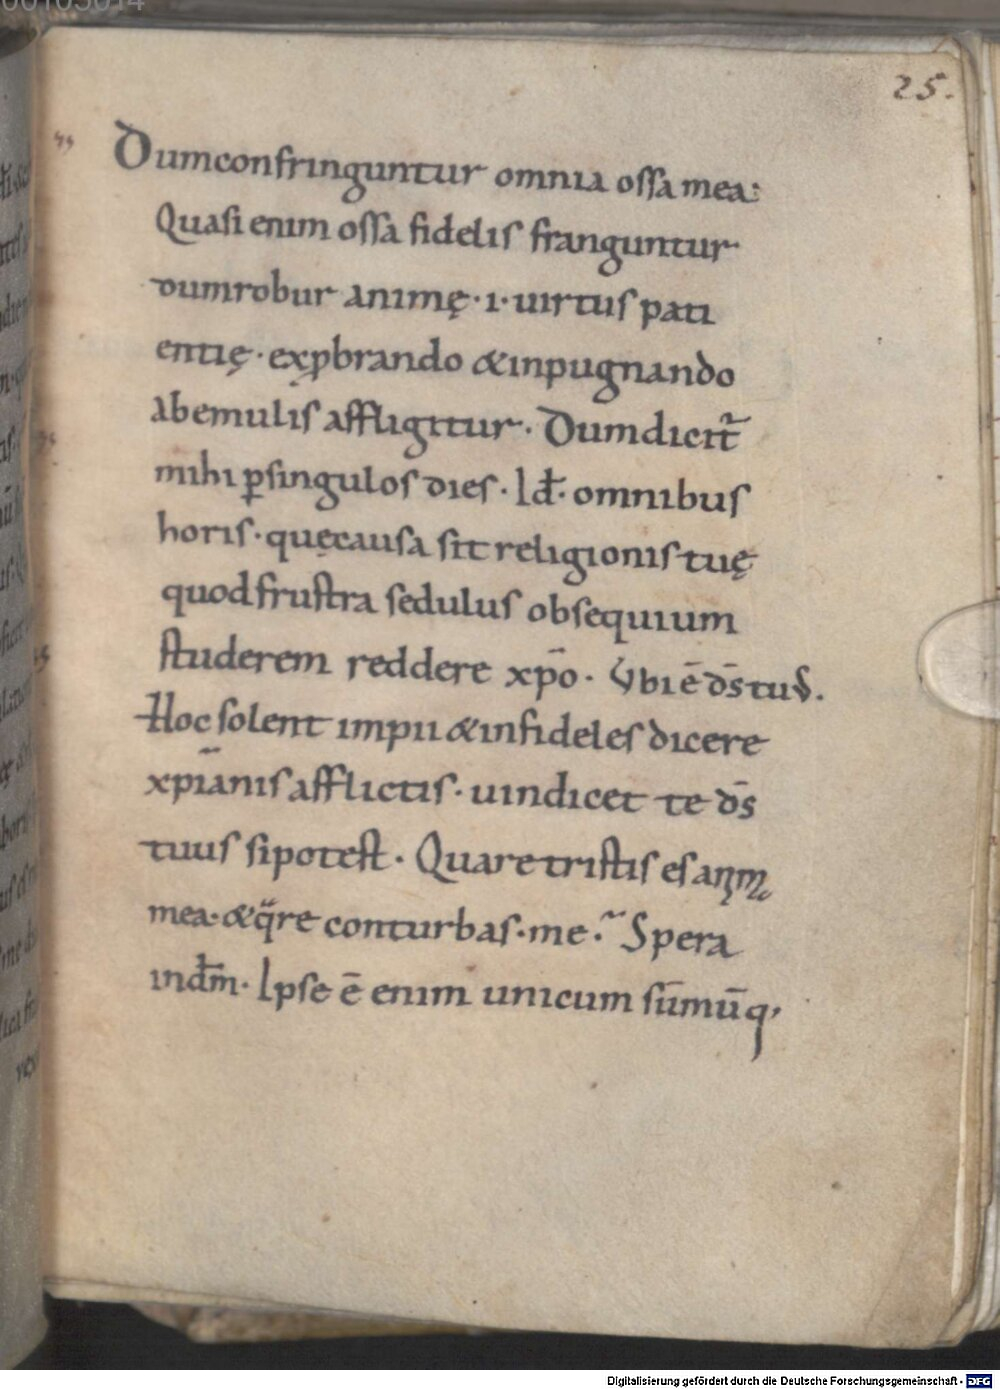 25.
Dumconfringuntur omnia ossa mea:
Quasi enim ossa fidelis franguntur·
dumrobur animę·i·uirtus pati
entię·exꝓbrando &inpugnando
abemulis affligitur· Dumdicit̄
mihi ꝑsingulos dies· Id̄· omnibus
horis·quęcausa sit religionis tuę
quodfrustra sedulus obsequium
studerem reddere xp̄o· Vbi ē ds̄ tuus.
Hoc solent impii &infideles dicere
xpīanis afflictis· uindicet te ds̄
tuus sipotest· Quare tristis es anima
mea·&qͣre conturbas·me·͂ Spera
indm̄· Ipse ē enim unicum sūmūq,
Digitalisierung gefördert durch die Deutsche Forschungsgemeinschaft - DFG